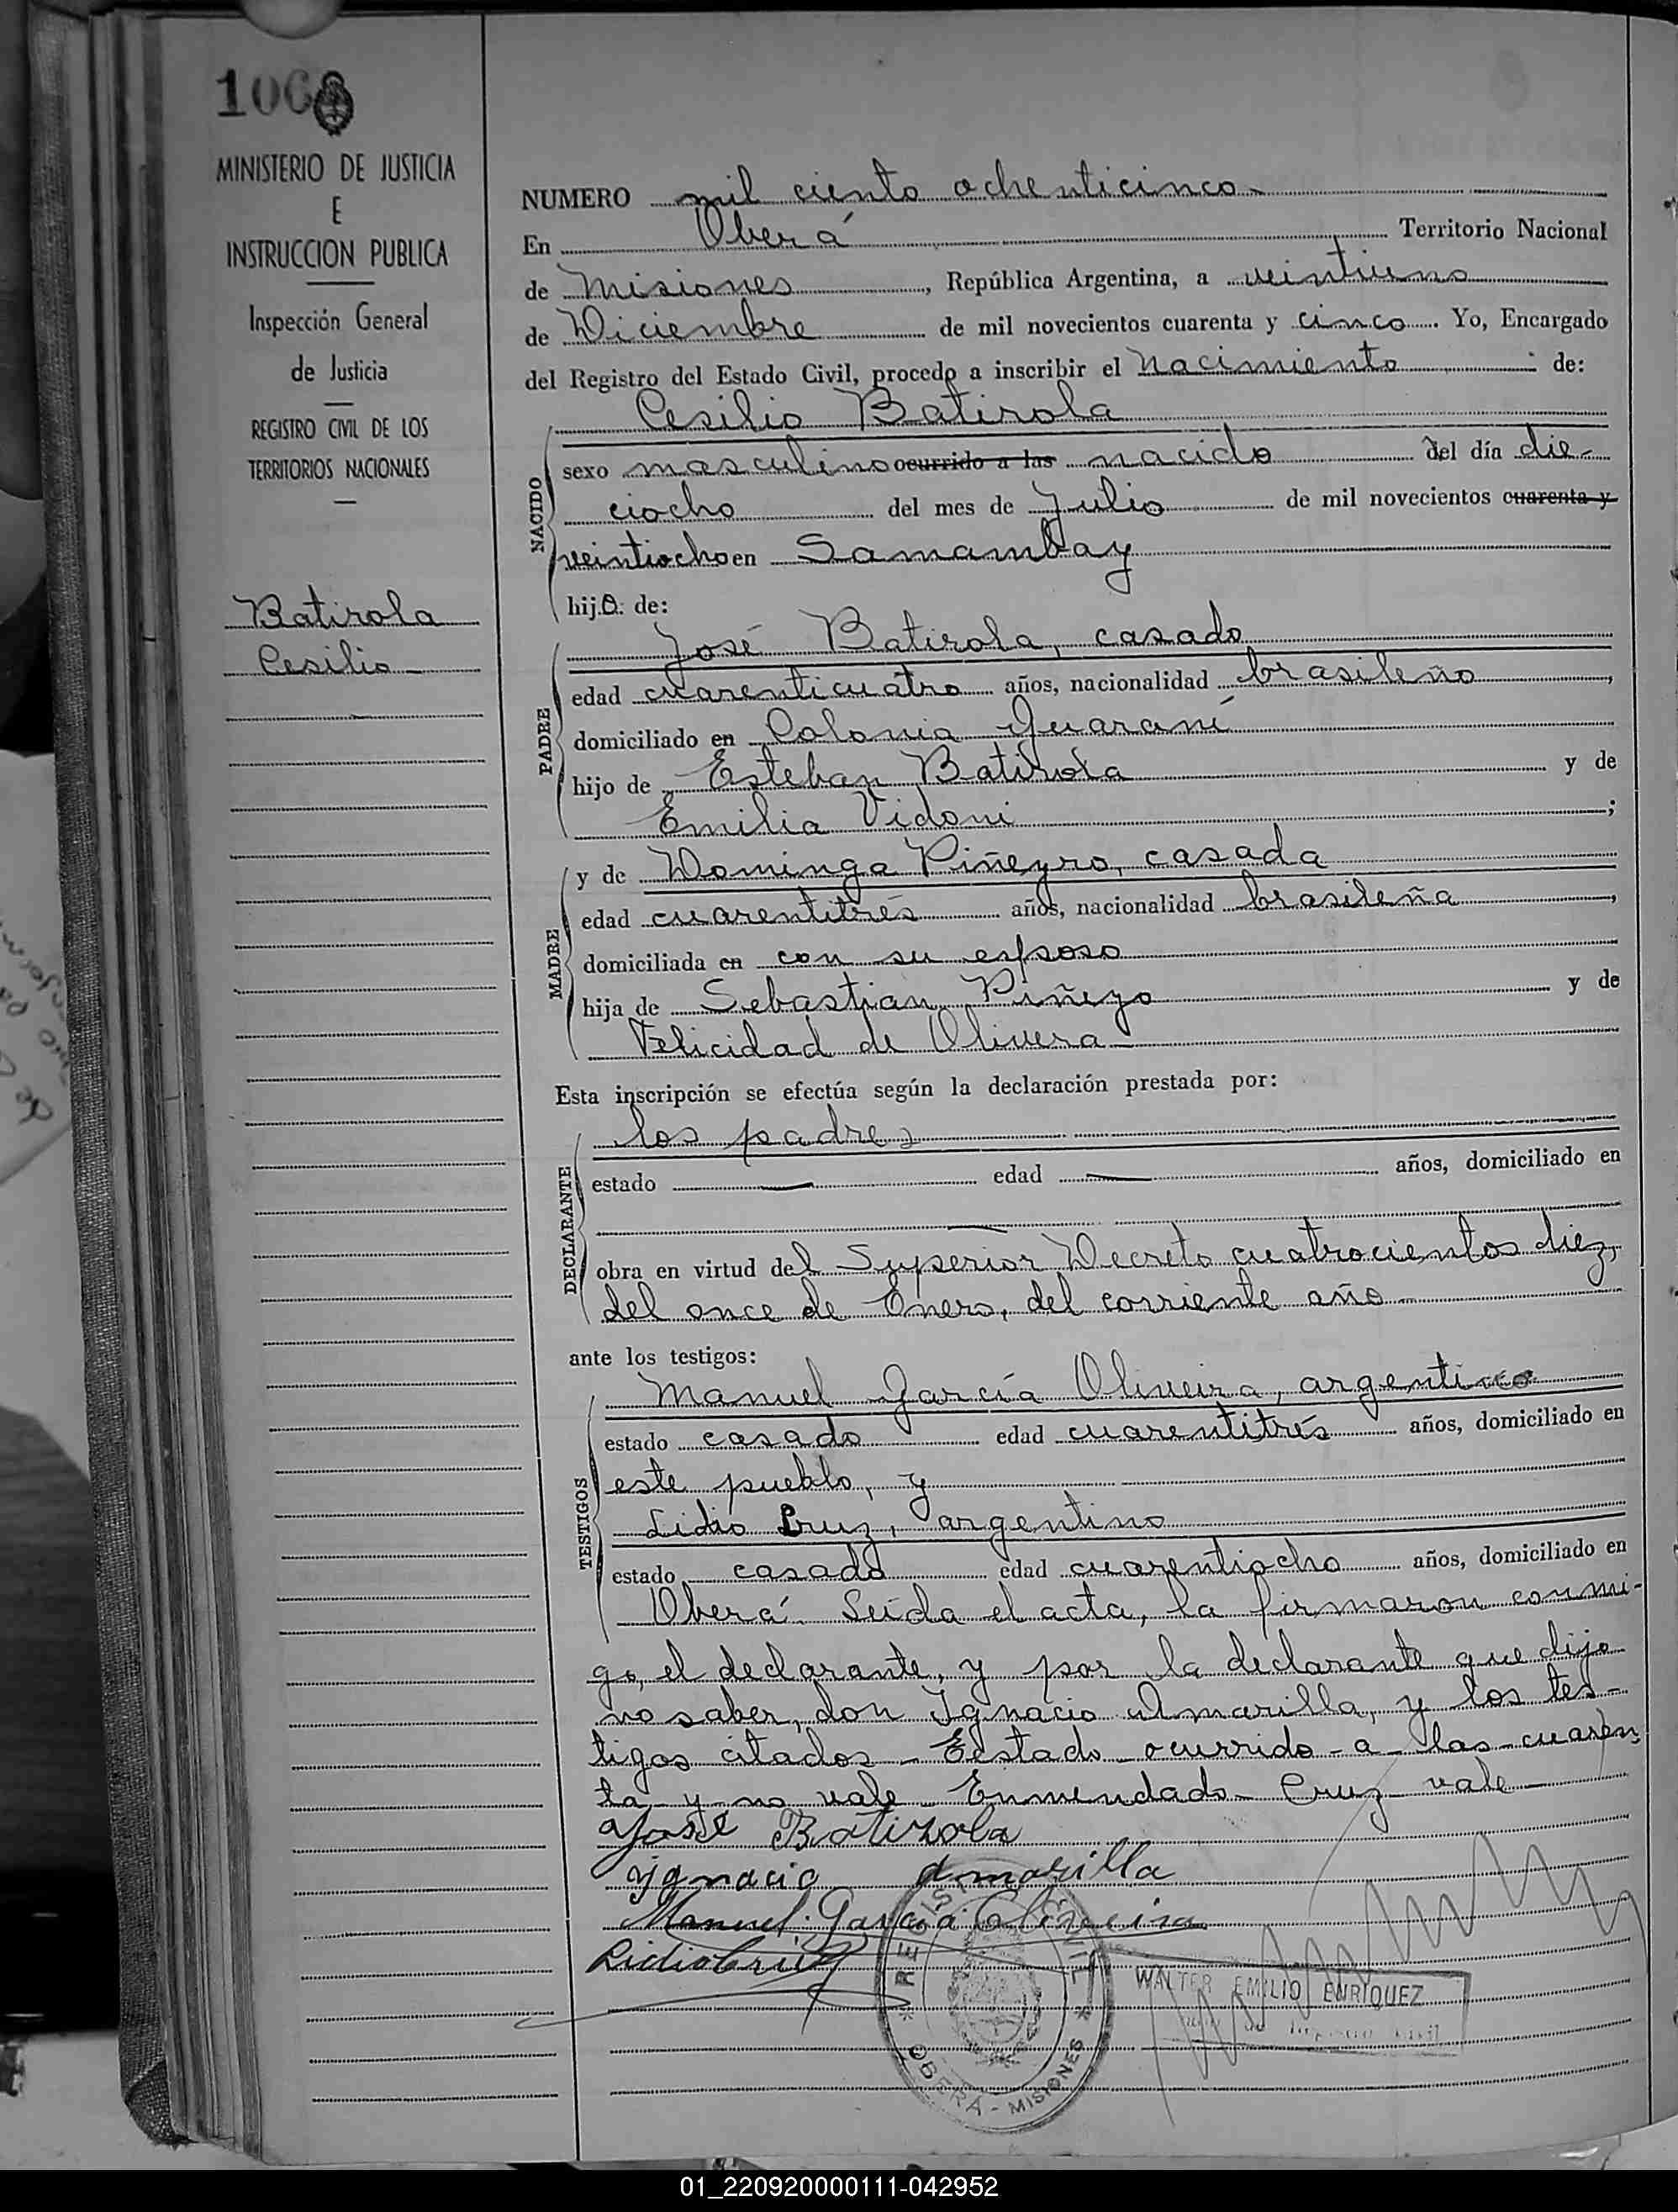 106
MINISTERIO DE JUSTICIA
E
INSTRUCCION PUBLICA
Inspección General
de Justicia
REGISTRO CIVIL DE LOS
TERRITORIOS NACIONALES
Batirola
Cesilio
NUMERO mil ciento ochenticinco
En Oberá Territorio Nacional
de Misiones, República Argentina, a veintiuno
de Diciembre de mil novecientos cuarenta y cinco. Yo, Encargado
del Registro del Estado Civil, procedo a inscribir el nacimiento de:
Cesilio Batirola
NACIDO
sexo masculino ocurrido a las nacido del día die-
ciocho del mes de Julio de mil novecientos cuarenta y
veintiocho en Samambay
hijo. de:
PADRE
José Batirola, casado
edad cuarenticuatro años, nacionalidad brasileño,
domiciliado en Colonia Guaraní
hijo de Esteban Batirola y de
Emilia Vidoni;
MADRE
y de Dominga Piñeyro, casada
edad cuarentitrés años, nacionalidad brasileña,
domiciliada en con su esposo
hija de Sebastián Piñeyo y de
Felicidad de Olivera
Esta inscripción se efectúa según la declaración prestada por:
DECLARANTE
los padres
estado edad años, domiciliado en
obra en virtud del Superior Decreto cuatrocientos diez,
del once de Enero, del corriente año
ante los testigos:
TESTIGOS
Manuel García Oliveira, argentino
estado casado edad cuarentitrés años, domiciliado en
este pueblo, y
Lidio Cruz, argentino
estado casado edad cuarentiocho años, domiciliado en
Oberá. Leída el acta, la firmaron conmi-
go, el declarante, y por la declarante que dijo
no saber, don Ignacio Amarilla, y los tes-
tigos citados - Testado - ocurrido - a - las - cuaren
ta - y - no vale. Enmendado - Cruz - vale
José Batirola
Ignacio Amarilla
Manuel García Oliveira
Lidio Cruz
REGISTRO CIVIL
OBERÁ - MISIONES
WALTER EMILIO ENRIQUEZ
01_220920000111-042952